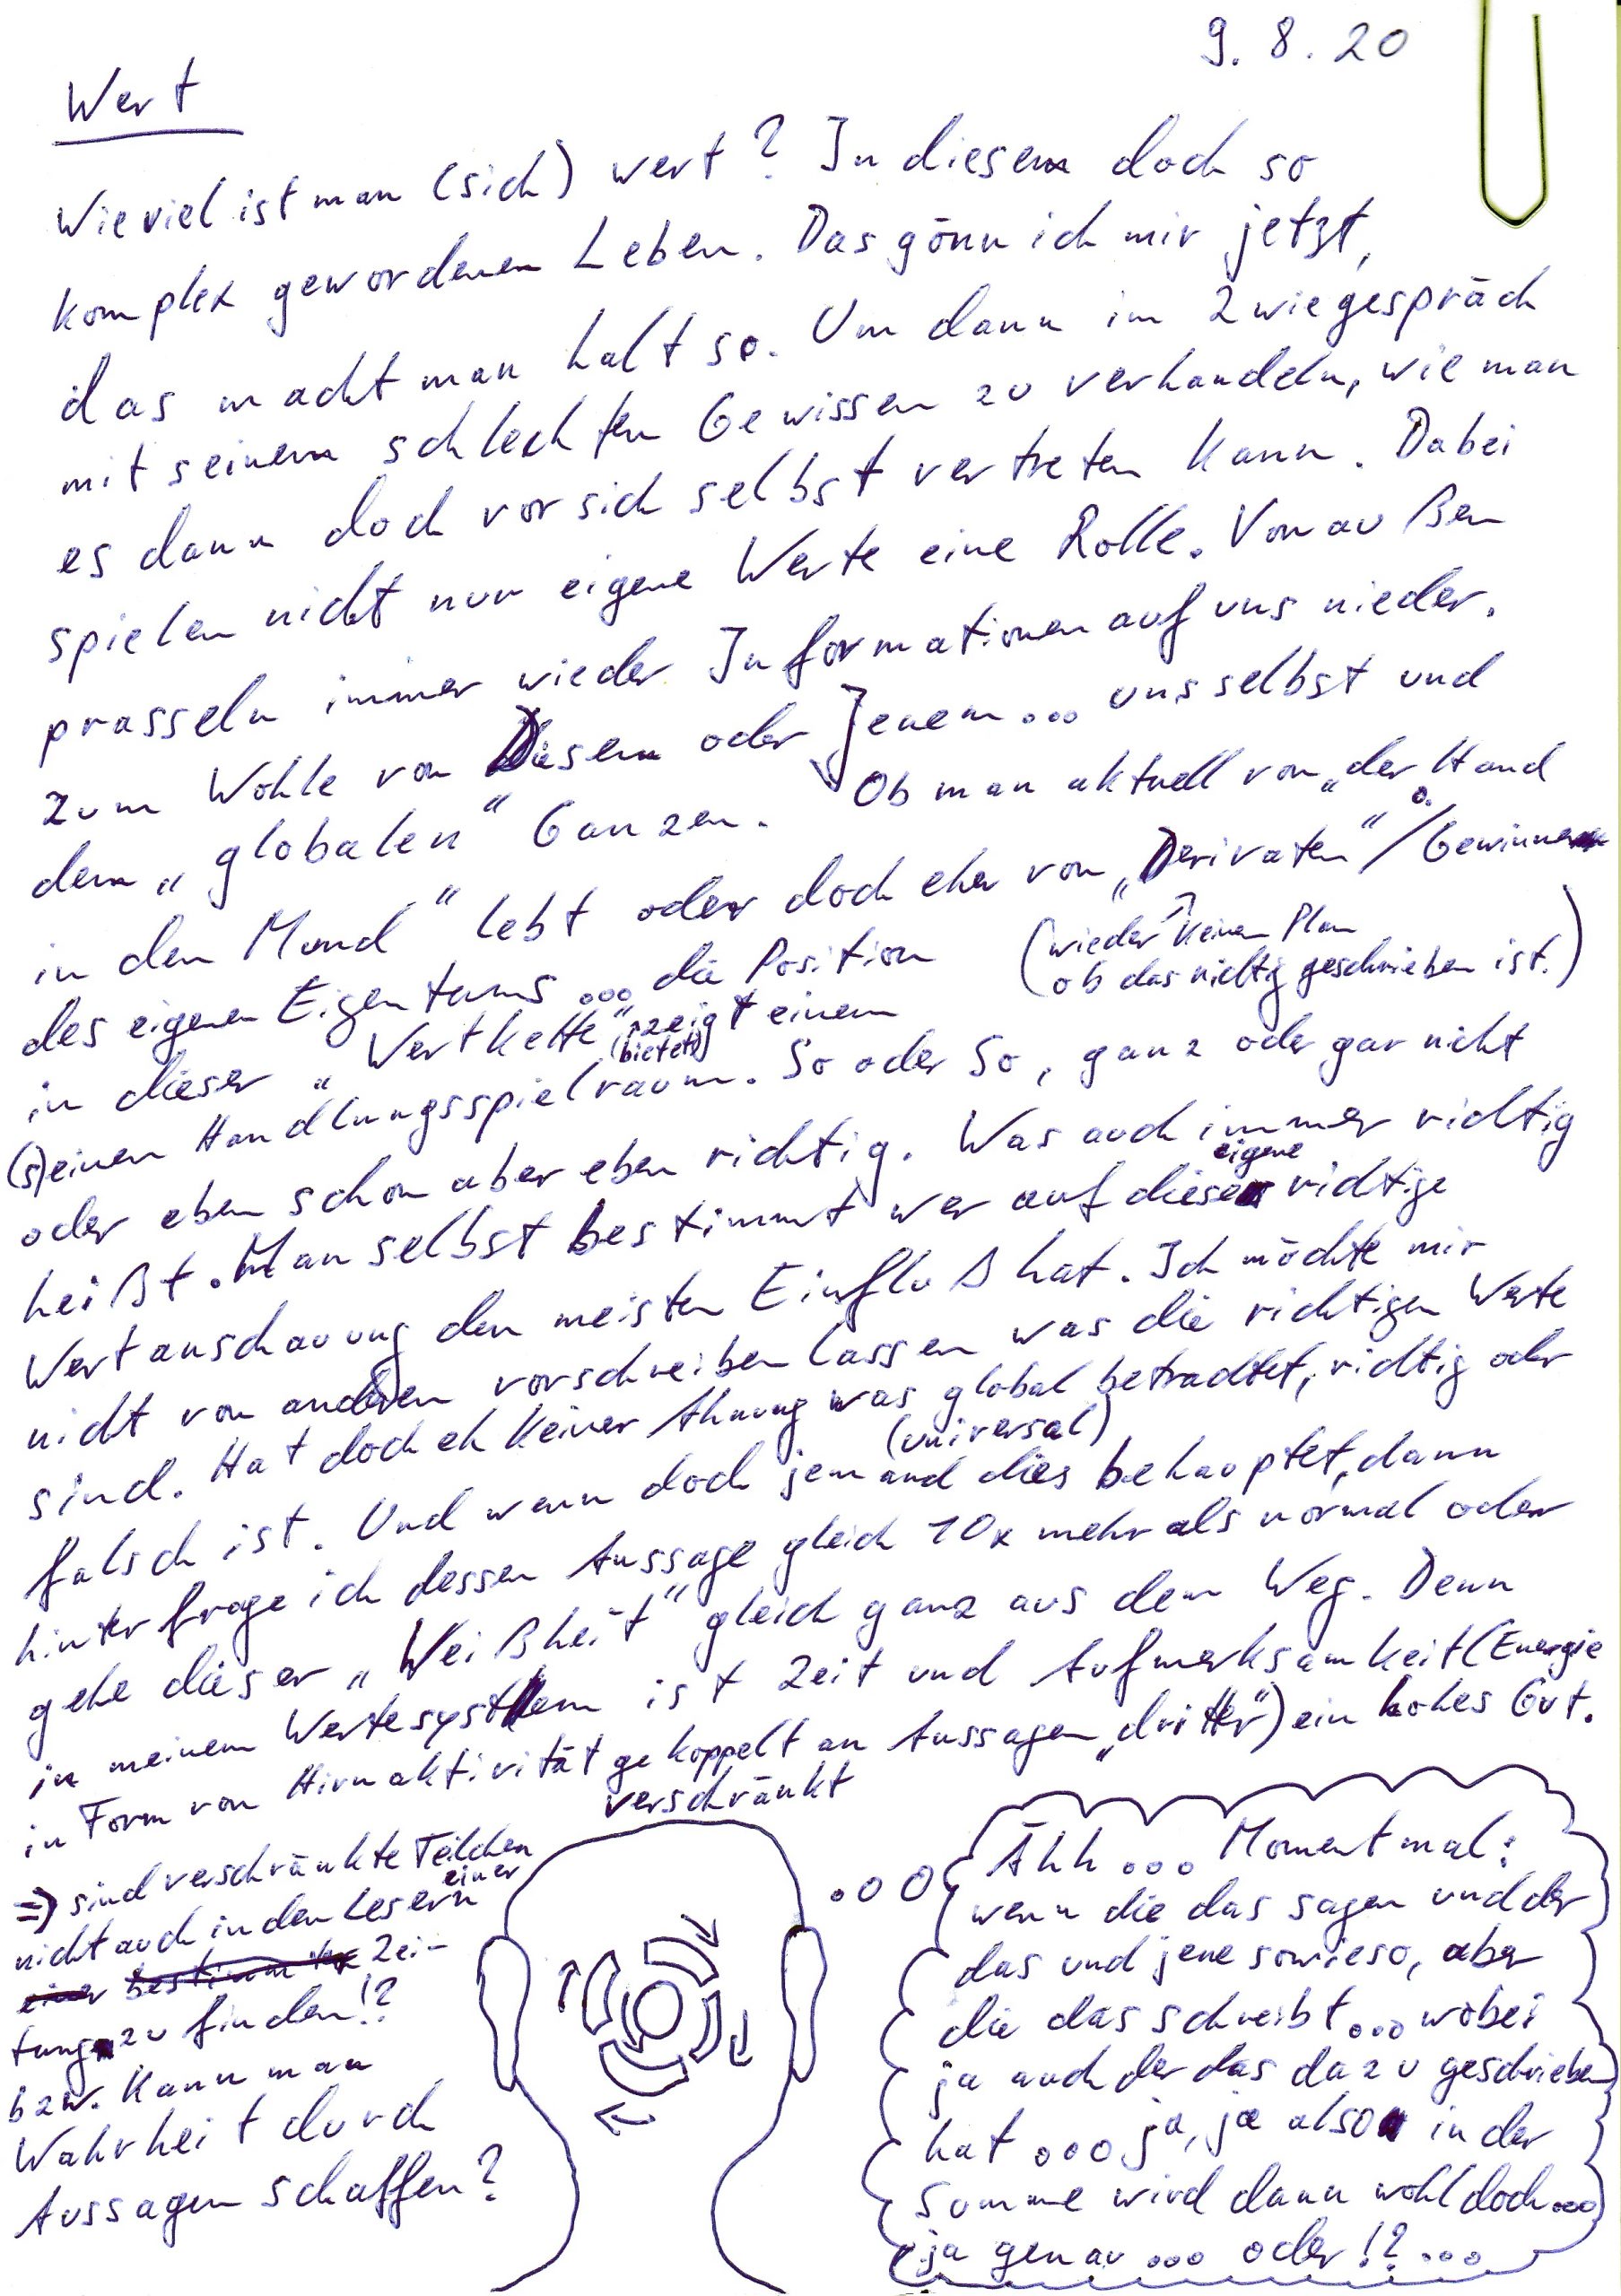 9. 8. 20
Wert
Wieviel ist man (sich) wert? In diesem doch so
komplex gewordenen Leben. Das gönn ich mir jetzt,
das macht man halt so. Um dann im Zwiegespräch
mit seinem schlechten Gewissen zu verhandeln, wie man
es dann doch vor sich selbst vertreten kann. Dabei
spielen nicht nur eigene Werte eine Rolle. Von außen
prasseln immer wieder Informationen auf uns nieder.
Zum Wohle von Diesem oder Jenem... uns selbst und
dem "globalen" Ganzen. Ob man aktuell von "der Hand
in den Mund" lebt oder doch eher von "Derivaten" / o. Gewinnen
(wieder keinen Plan
ob das richtig geschrieben ist.)
des eigenen Eigentums ... die Position
in dieser "Wertkette" zeigt einem
(bietet)
(s)einen Handlungsspielraum. So oder So, ganz oder gar nicht
oder eben schon aber eben richtig. Was auch immer richtig
heißt. Man selbst bestimmt wer auf diese eigene richtige
Wertanschauung den meisten Einfluß hat. Ich möchte mir
nicht von anderen vorschreiben lassen was die richtigen Werte
sind. Hat doch eh keiner Ahnung was global betrachtet, richtig oder
(universal)
falsch ist. Und wenn doch jemand dies behauptet, dann
hinterfrage ich dessen Aussage gleich 10x mehr als normal oder
gehe dieser "Weißheit" gleich ganz aus dem Weg. Denn
in meinem Wertesystem ist Zeit und Aufmerksamkeit (Energie
in Form von Hirnaktivität gekoppelt an Aussagen "dritter") ein hohes Gut.
verschränkt
=> sind verschränkte Teilchen
nicht auch in den Lesern einer
einer bestimmten Zei-
tung zu finden!?
bzw. Kann man
Wahrheit durch
Aussagen schaffen?
Ähh ... Moment mal:
wenn die das sagen und der
das und jene sowieso, aber
die das schreibt ... wobei
ja auch der das dazu geschrieben
hat ... ja, ja also in der
Summe wird dann wohl doch ...
ja genau ... oder!? ...